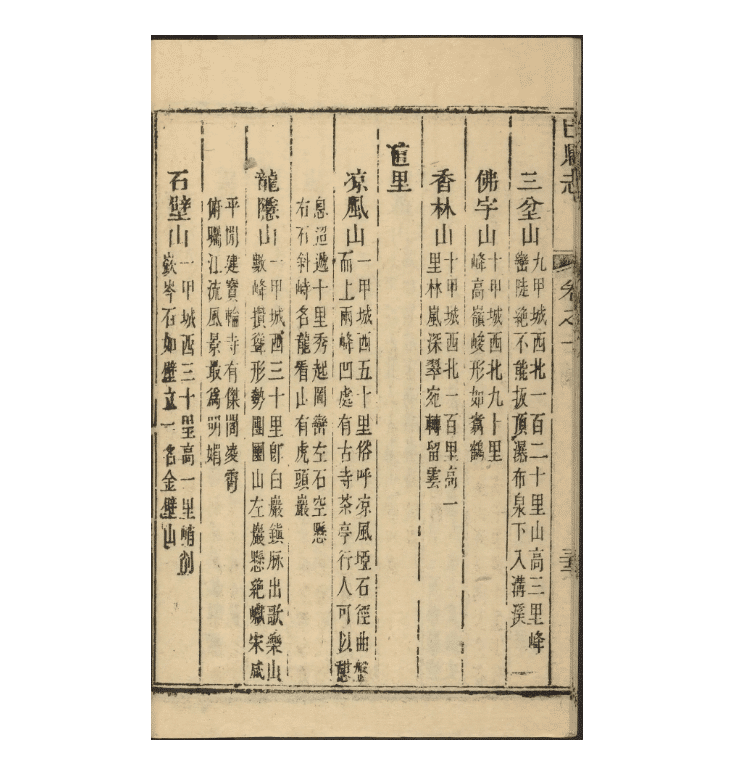 巴縣志 卷之一
三坌山 九甲城西北一百二十里山高三里峰
巒陡絶不能扳頂瀑布泉下入溝溪
佛字山 十甲城西北九十里
峰高嶺峻形如翥鶴
香林山 十甲城西北一百里高一
里林嵐深翠宛轉留雲
直里
凉風山 一甲城西五十里俗呼凉風埡石徑曲盤
而上兩峰凹處有古寺茶亭行人可以憇
息迢遞十里秀起圓巒左石空懸
右石斜峙名龍看山有虎頭巖
龍隱山 一甲城西三十里卽白巖鎮脉出歌樂山
數峰攢聳形勢團圞山左巖懸絶巇宋咸
平間建寶輪寺有傑閣凌霄
俯矚江流風景最爲明媚
石壁山 一甲城西三十里高一里峭削
嶔岑石如壁立一名金壁山